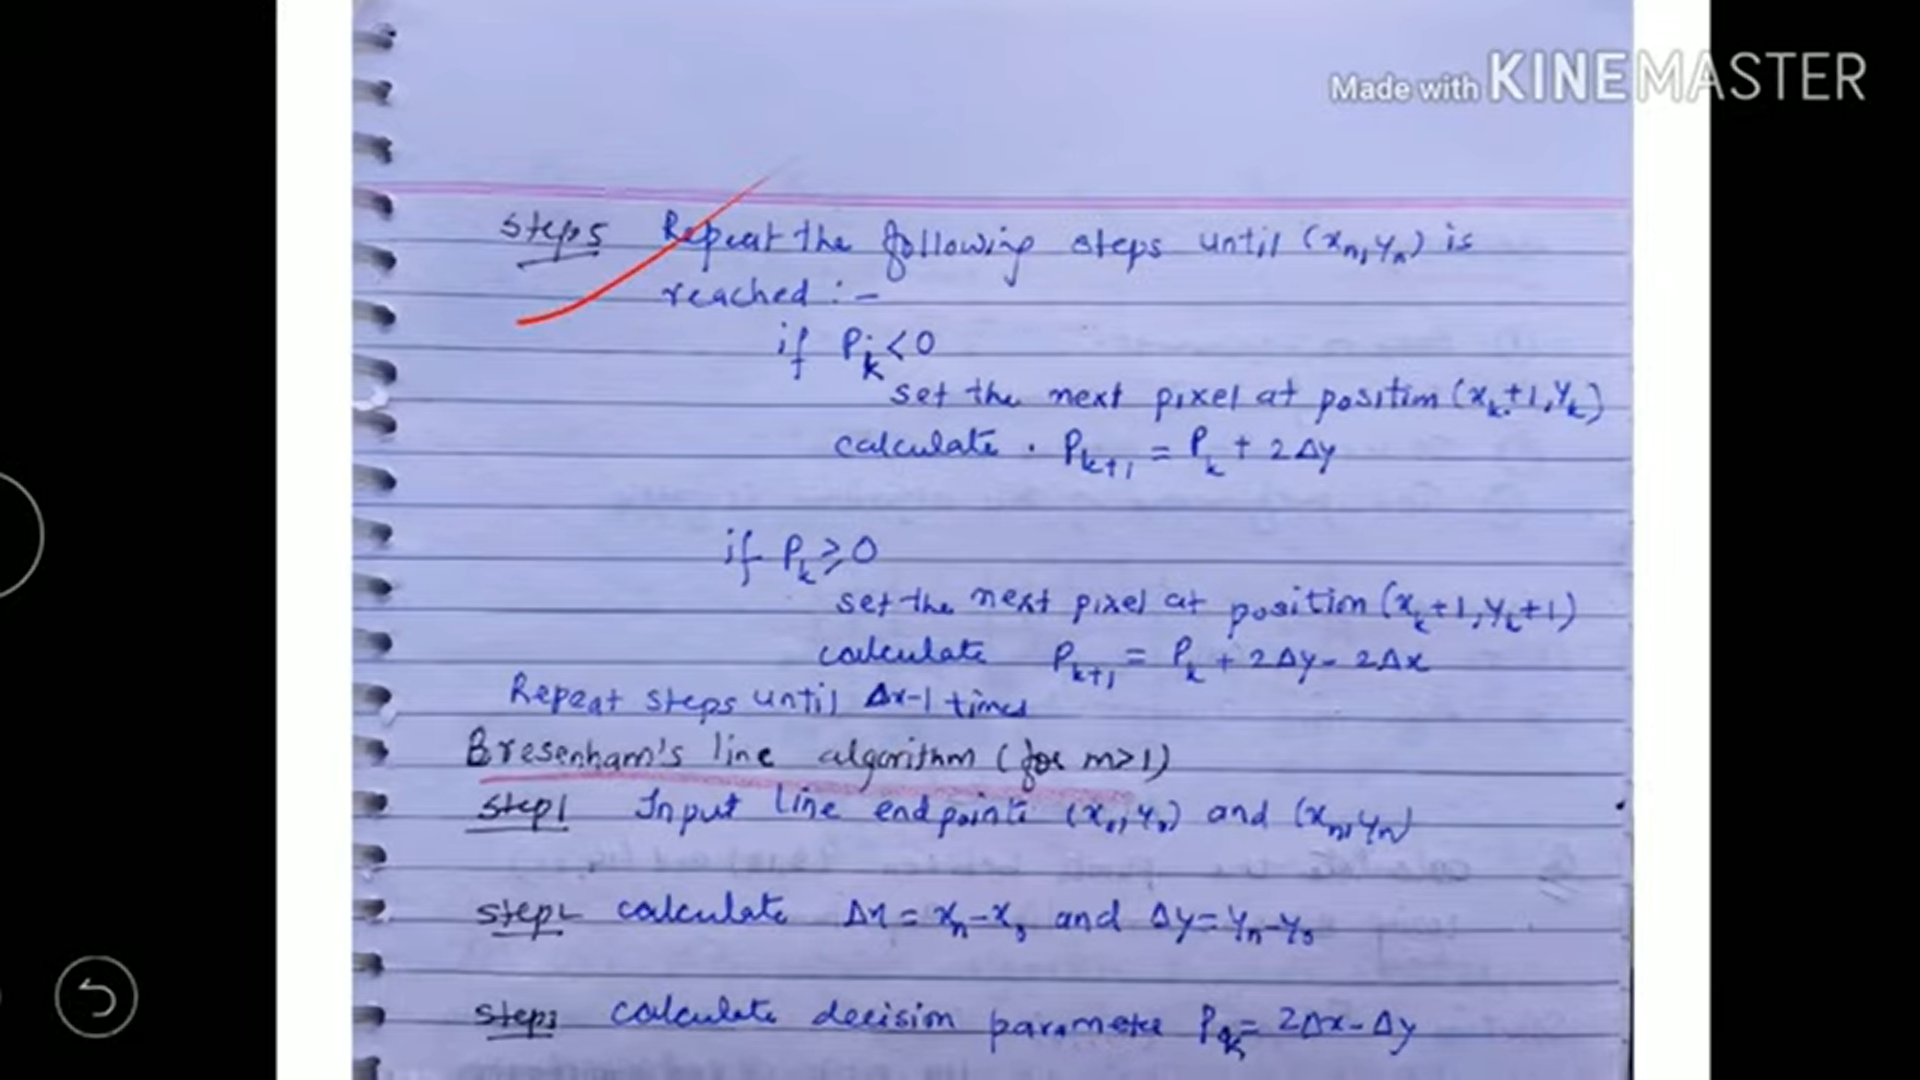 Made with KINEMASTER
Step5 Repeat the following steps until (xn, yn) is
reached :-
if Pk < 0
set the next pixel at position (xk+1, yk)
calculate . Pk+1 = Pk + 2Δy
if Pk ≥ 0
set the next pixel at position (xk+1, yk+1)
calculate Pk+1 = Pk + 2Δy - 2Δx
Repeat steps until Δx-1 times
Bresenham's line algorithm (for m>1)
Step1 Input line endpoints (x0, y0) and (xn, yn)
Step2 calculate Δx = xn - x0 and Δy = yn - y0
Step3 calculate decision parameter Pk = 2Δx - Δy